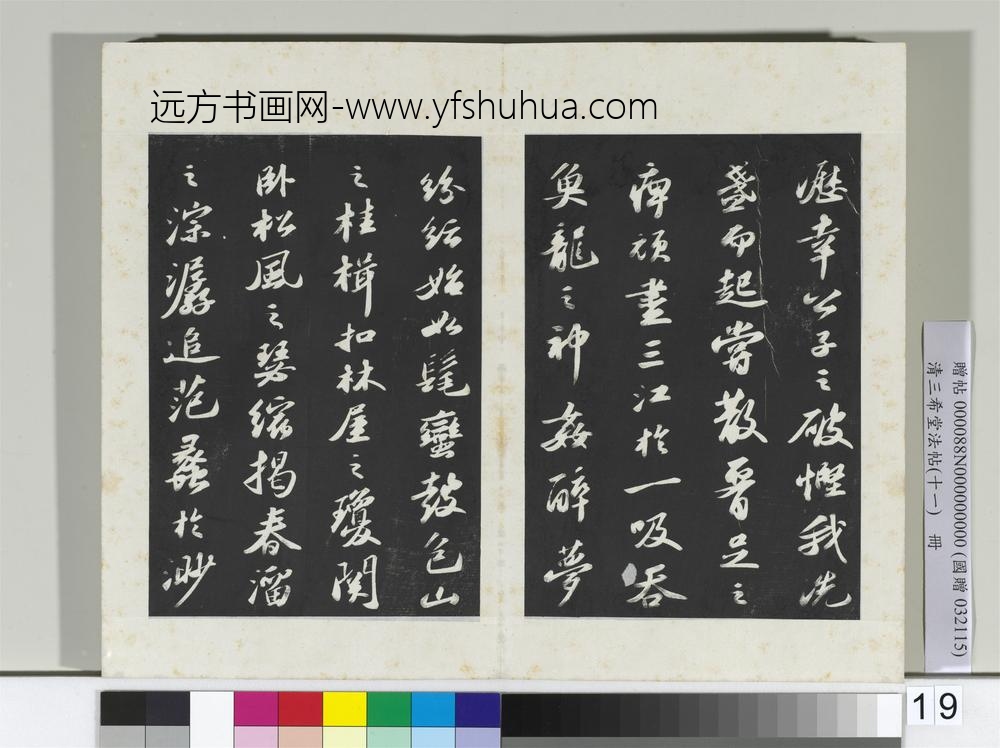 远方书画网-www.yfshuhua.com
瀝幸公子之破慳我洗
盞而起嘗散腰足之
痺頑盡三江於一吸吞
魚龍之神姦醉夢
紛紜始如髦蠻鼓包山
之桂楫扣林屋之瓊關
卧松風之瑟縮揭春溜
之淙潺追范蠡於渺
贈帖 000088N000000000 (國贈 032115)
清三希堂法帖(十一) 冊
19